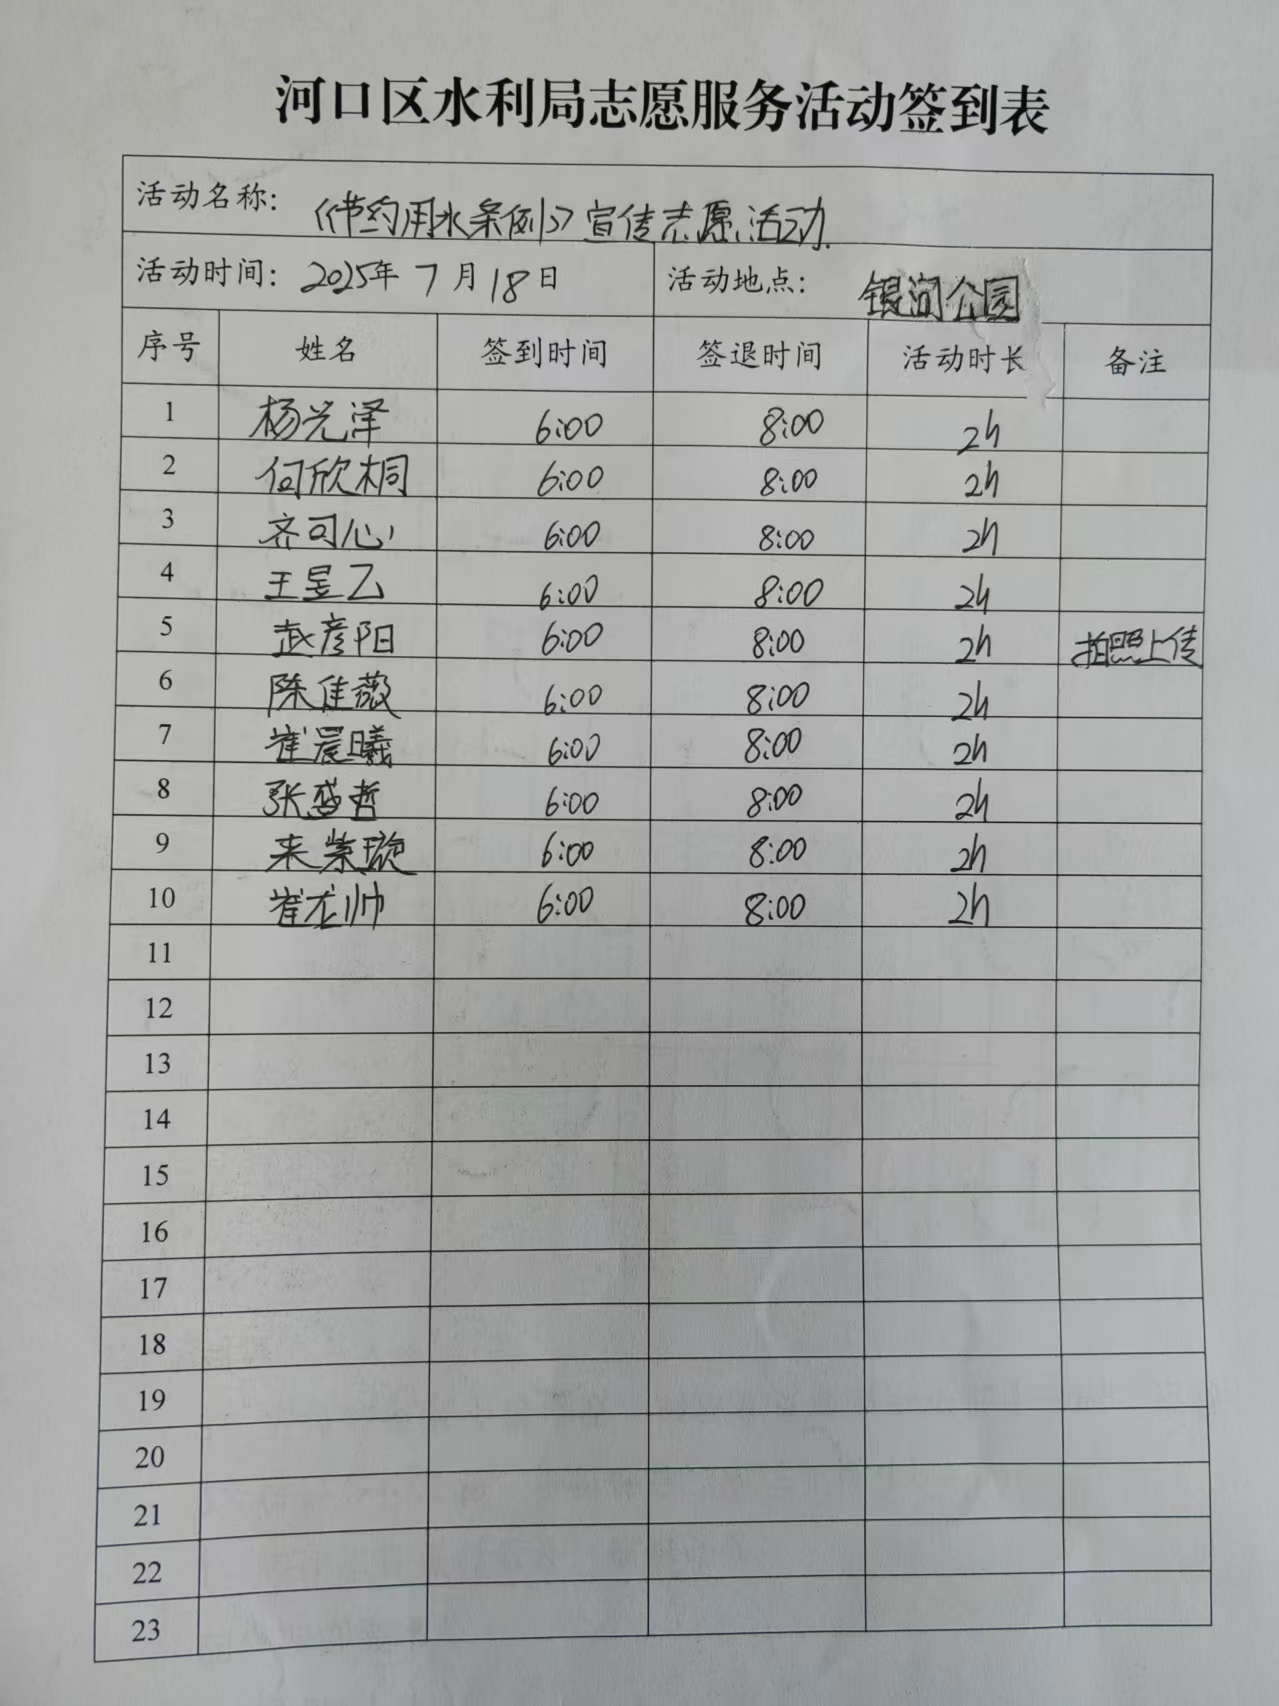 河口区水利局志愿服务活动签到表
活动名称: 《节约用水条例》宣传志愿活动.
活动时间: 2025年7月18日 活动地点: 银河公园
序号 姓名 签到时间 签退时间 活动时长 备注
1 杨光泽 6:00 8:00 2h
2 何欣桐 6:00 8:00 2h
3 齐可心 6:00 8:00 2h
4 王昱乙 6:00 8:00 2h
5 武彦阳 6:00 8:00 2h 拍照上传
6 陈佳薇 6:00 8:00 2h
7 崔晨曦 6:00 8:00 2h
8 张盛哲 6:00 8:00 2h
9 来紫璇 6:00 8:00 2h
10 崔龙帅 6:00 8:00 2h
11
12
13
14
15
16
17
18
19
20
21
22
23